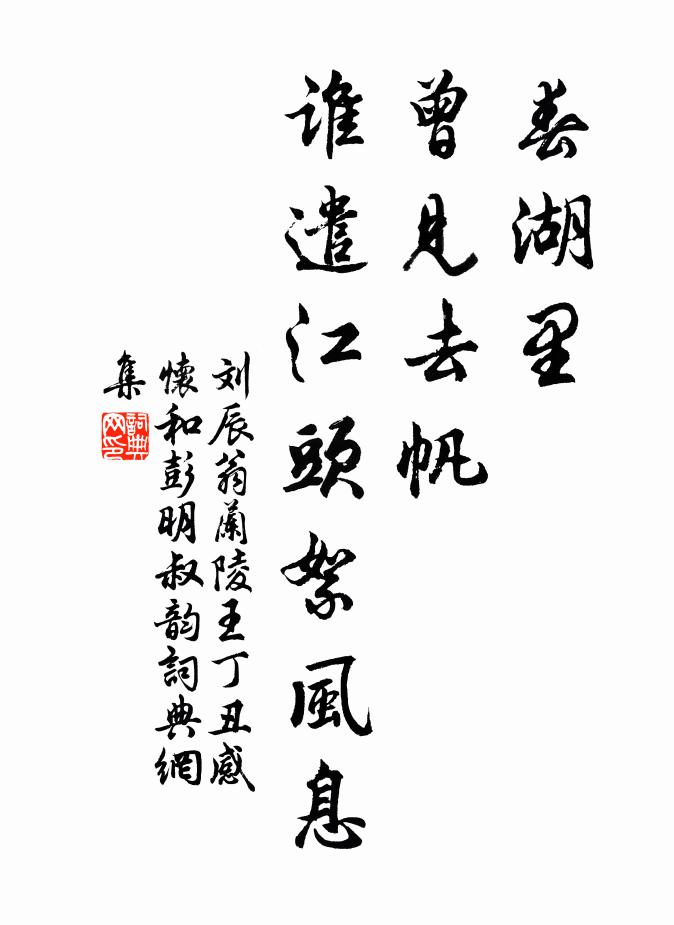 春湖里
曾見去帆
誰遣江頭絮風息
刘辰翁蘭陵王丁丑感
懷和彭明叔韵詞典網
集
詞典
网印